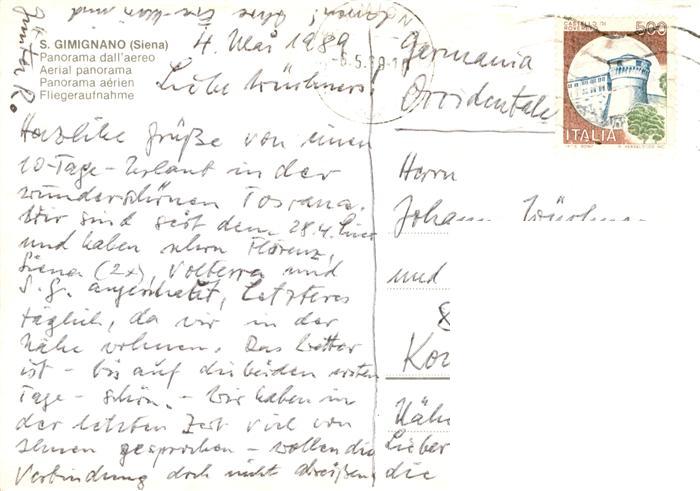 S. GIMIGNANO (Siena)
Panorama dall'aereo
Aerial panorama
Panorama aérien
Fliegeraufnahme
4. Mai 1989
Liebe
Herzliche Grüße von einem
10-Tage-Urlaub in der
wunderschönen Toscana.
Wir sind seit dem 28.4. hier
und haben schon Florenz,
Siena (2x), Volterra und
S. G. angeschaut, letzteres
täglich, da wir in der
Nähe wohnen. Das Wetter
ist - bis auf die beiden ersten
Tage - schön. - Wir haben in
der letzten Zeit viel von
Ihnen gesprochen - wollen die
Verbindung doch nicht abreißen
Lieber
die
und
Ihre
Günter R.
Germania
Occidentale
Herrn
Johann
und
8
Nähe
CASTELLO DI
ROVERETO
500
ITALIA